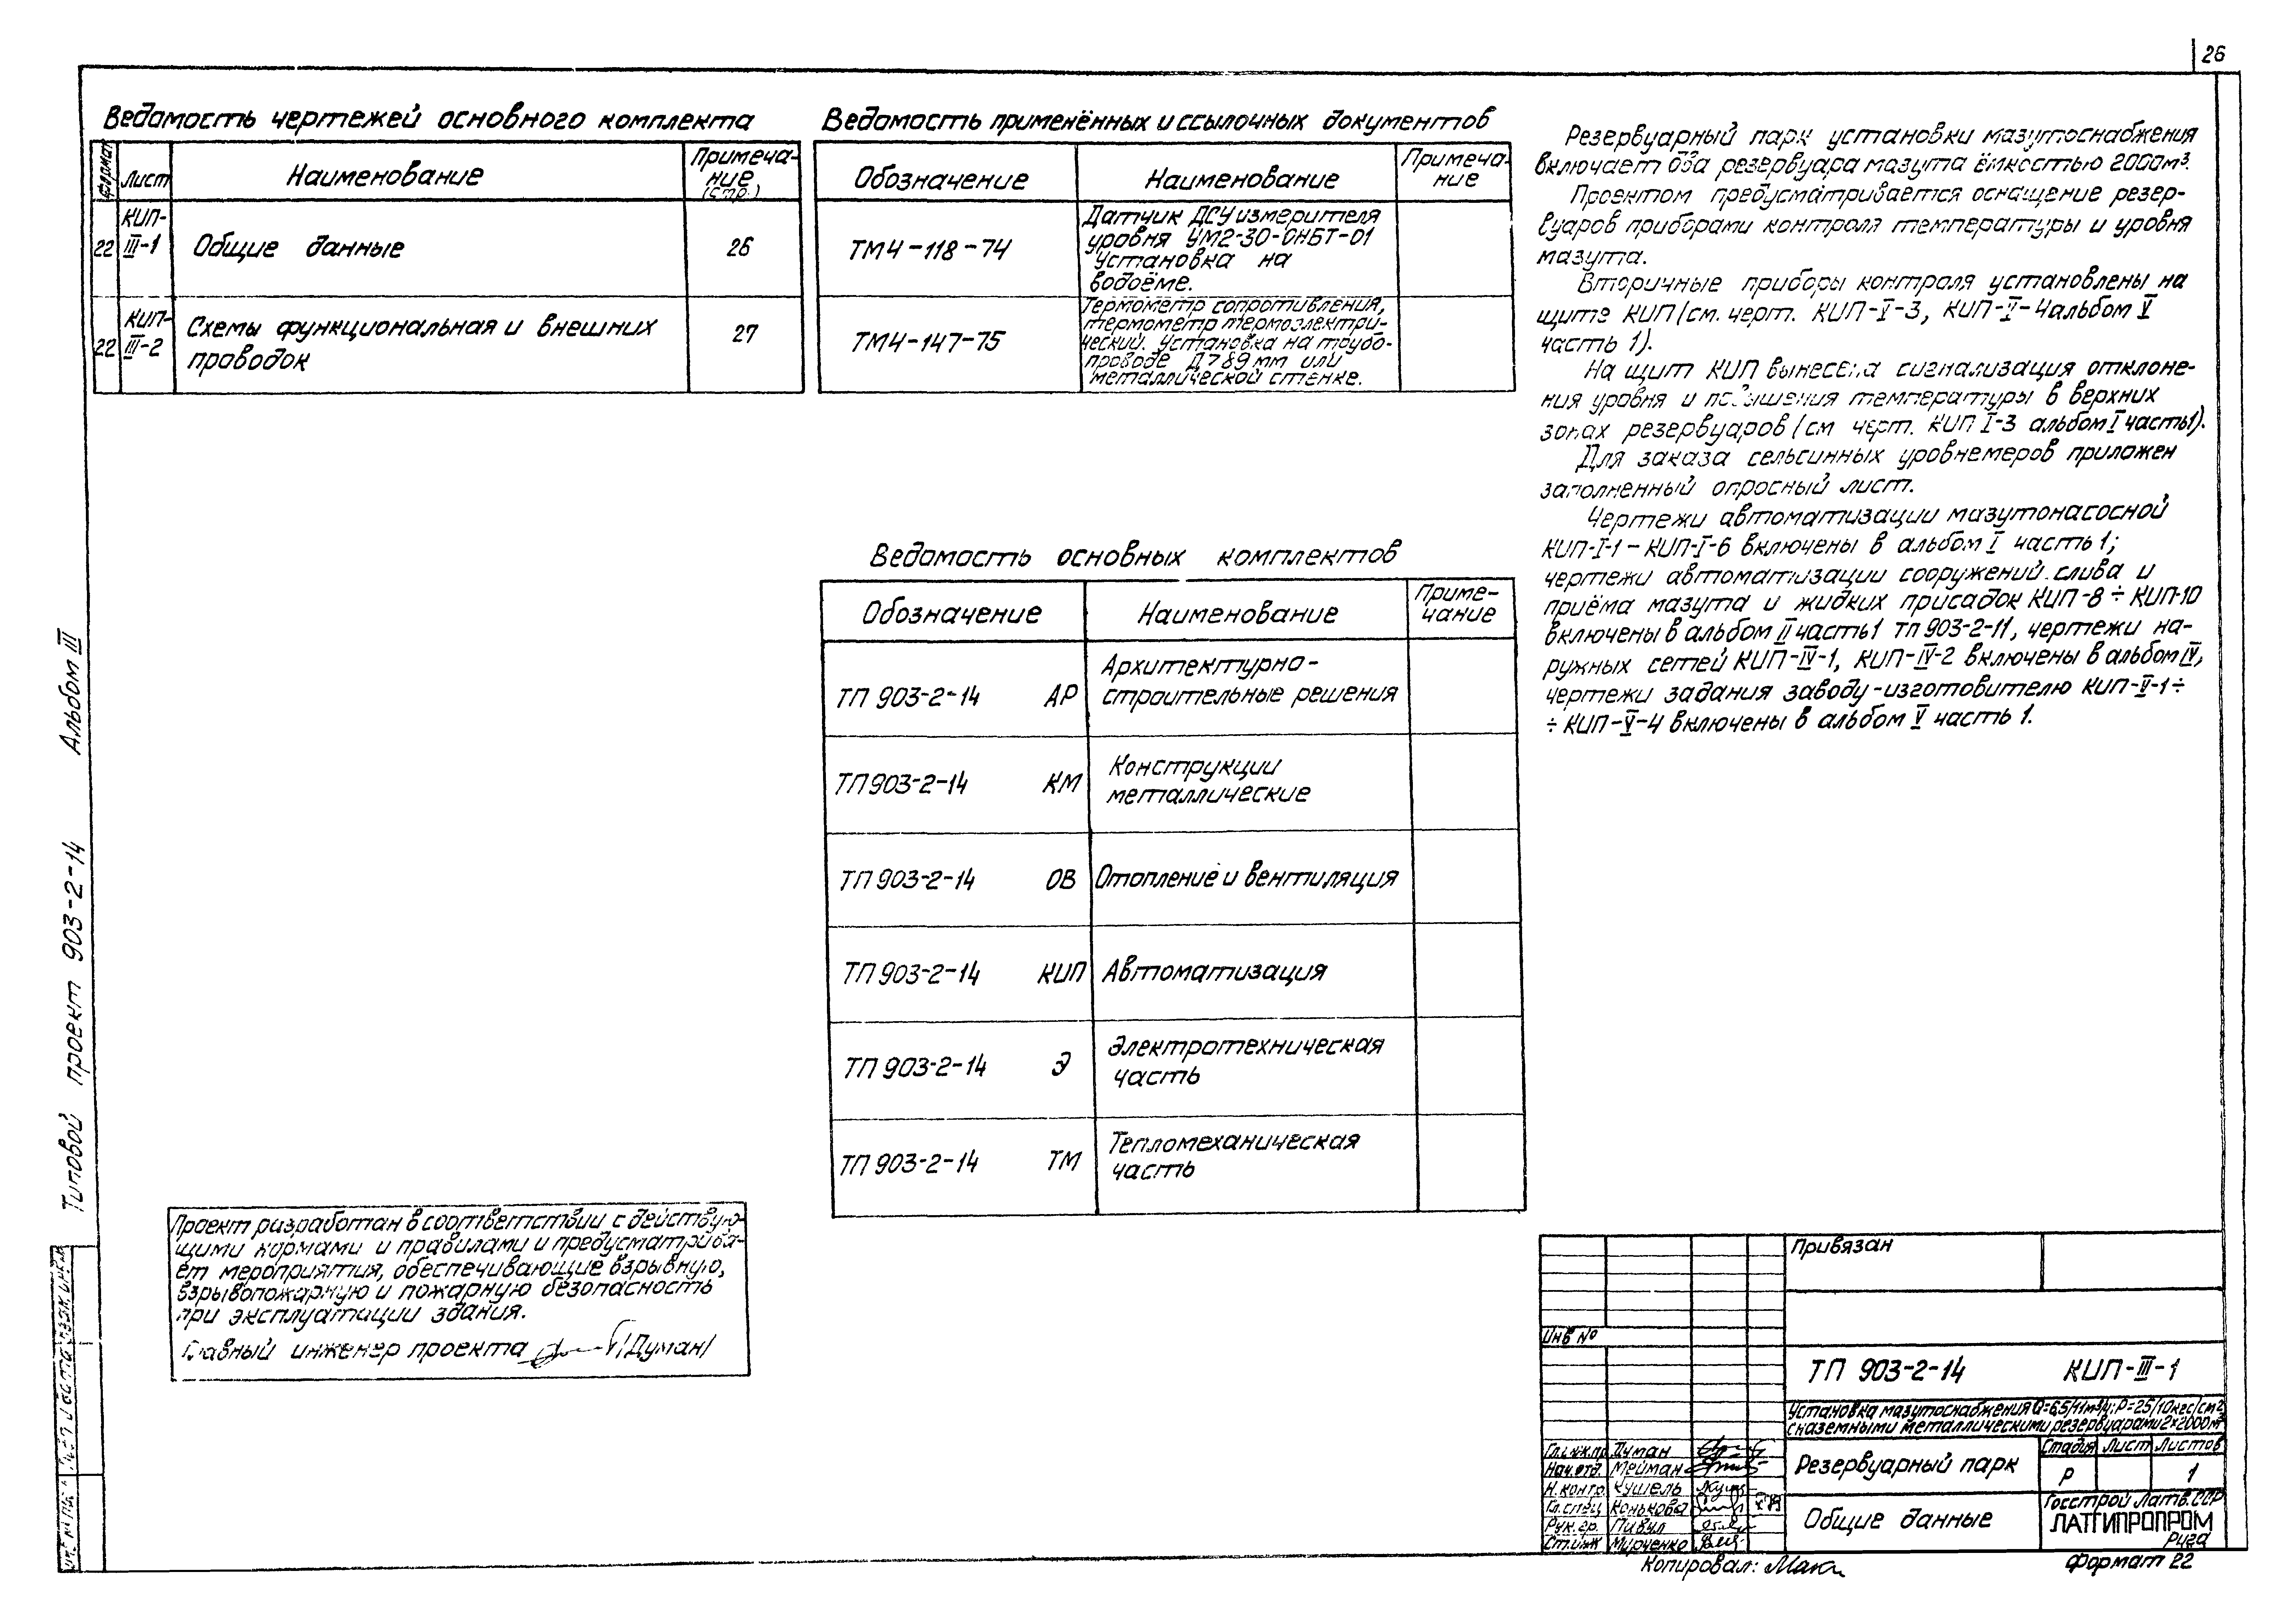 26
Ведомость чертежей основного комплекта
Формат
Лист
Наименование
Примеча-
ние
(стр.)
22
КИП-
III-1
Общие данные
26
22
КИП-
III-2
Схемы функциональная и внешних
проводок
27
Ведомость применённых и ссылочных документов
Обозначение
Наименование
Примеча-
ние
ТМ4-118-74
Датчик ДСУ измерителя
уровня УМ2-30-ОНБТ-01
Установка на
водоёме.
ТМ4-147-75
Термометр сопротивления,
термометр термоэлектри-
ческий. Установка на трубо-
проводе Д>89мм или
металлической стенке.
Ведомость основных комплектов
Обозначение
Наименование
Приме-
чание
ТП 903-2-14 АР
Архитектурно-
строительные решения
ТП 903-2-14 КМ
Конструкции
металлические
ТП 903-2-14 ОВ
Отопление и вентиляция
ТП 903-2-14 КИП
Автоматизация
ТП 903-2-14 Э
Электротехническая
часть
ТП 903-2-14 ТМ
Тепломеханическая
часть
Резервуарный парк установки мазутоснабжения
включает два резервуара мазута ёмкостью 2000м³.
Проектом предусматривается оснащение резер-
вуаров приборами контроля температуры и уровня
мазута.
Вторичные приборы контроля установлены на
щите КИП (см. черт. КИП-V-3, КИП-V-4 альбом V
часть 1).
На щит КИП вынесена сигнализация отклоне-
ния уровня и повышения температуры в верхних
зонах резервуаров (см черт. КИП I-3 альбом I часть1).
Для заказа сельсинных уровнемеров приложен
заполненный опросный лист.
Чертежи автоматизации мазутонасосной
КИП-I-1 – КИП-I-6 включены в альбом I часть 1;
чертежи автоматизации сооружений слива и
приёма мазута и жидких присадок КИП-8 ÷ КИП-10
включены в альбом II часть1 ТП 903-2-11, чертежи на-
ружных сетей КИП-IV-1, КИП-IV-2 включены в альбом IV,
чертежи задания заводу-изготовителю КИП-V-1 ÷
÷ КИП-V-4 включены в альбом V часть 1.
Типовой проект 903-2-14 Альбом III
Проект разработан в соответствии с действую-
щими нормами и правилами и предусматрива-
ет мероприятия, обеспечивающие взрывную,
взрывопожарную и пожарную безопасность
при эксплуатации здания.
Главный инженер проекта /Думан/
Привязан
Инв №
ТП 903-2-14 КИП-III-1
Установка мазутоснабжения Q=6,5/11м³/ч; Р=25/10кгс/см²
с наземными металлическими резервуарами 2×2000м³
Гл.инж.пр. Думан
Нач.отд. Мейман
Н.контр. Кушель
Гл.спец Конькова
Рук.гр. Пивул
Ст.инж Мурченко
Резервуарный парк
Стадия Лист Листов
Р 1
Общие данные
Госстрой Латв.ССР
ЛАТГИПРОПРОМ
Рига
Копировал:
Формат 22